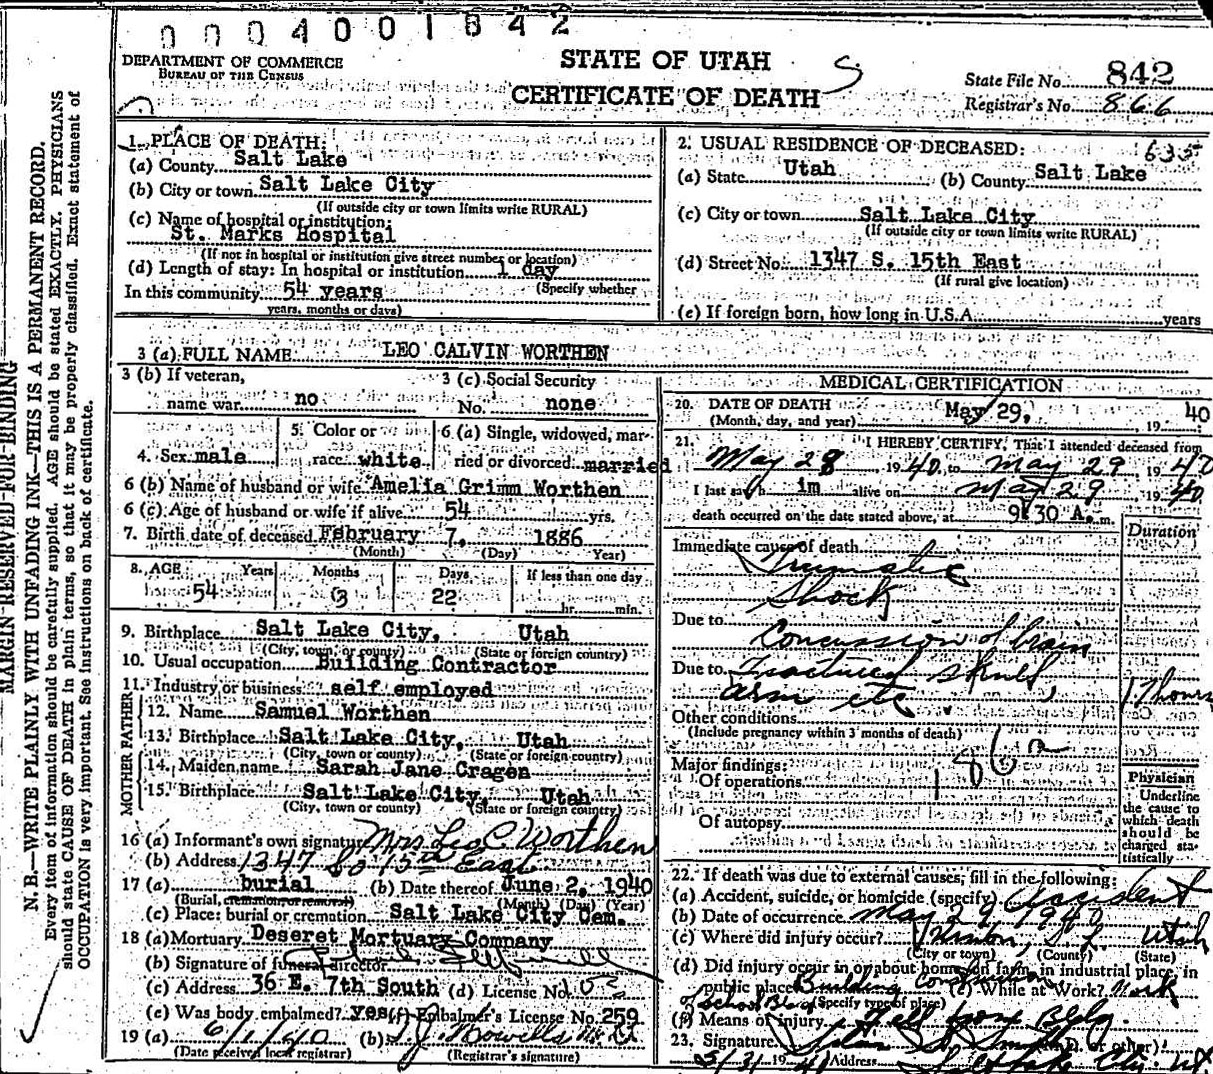 0004001842
DEPARTMENT OF COMMERCE
BUREAU OF THE CENSUS
STATE OF UTAH
CERTIFICATE OF DEATH
S.
State File No. 842
Registrar's No. 866
MARGIN RESERVED FOR BINDING
N. B.—WRITE PLAINLY WITH UNFADING INK—THIS IS A PERMANENT RECORD.
Every item of information should be carefully supplied. AGE should be stated EXACTLY. PHYSICIANS
should state CAUSE OF DEATH in plain terms, so that it may be properly classified. Exact statement of
OCCUPATION is very important. See instructions on back of certificate.
1. PLACE OF DEATH:
(a) County Salt Lake
(b) City or town Salt Lake City
(If outside city or town limits write RURAL)
(c) Name of hospital or institution:
St. Marks Hospital
(If not in hospital or institution give street number or location)
(d) Length of stay: In hospital or institution 1 day
(Specify whether
In this community 54 years
years, months or days)
2. USUAL RESIDENCE OF DECEASED: 635
(a) State Utah (b) County Salt Lake
(c) City or town Salt Lake City
(If outside city or town limits write RURAL)
(d) Street No. 1347 S. 15th East
(If rural give location)
(e) If foreign born, how long in U.S.A. years
3 (a) FULL NAME LEO CALVIN WORTHEN
3 (b) If veteran,
name war no
3 (c) Social Security
No. none
4. Sex male
5. Color or
race white
6 (a) Single, widowed, mar-
ried or divorced married
6 (b) Name of husband or wife Amelia Grimm Worthen
6 (c) Age of husband or wife if alive 54 yrs.
7. Birth date of deceased February 7, 1886
(Month) (Day) Year)
8. AGE Years Months Days If less than one day
54 3 22 hr. min.
9. Birthplace Salt Lake City, Utah
(City, town, or county) (State or foreign country)
10. Usual occupation Building Contractor
11. Industry or business self employed
FATHER
12. Name Samuel Worthen
13. Birthplace Salt Lake City, Utah
(City, town or county) (State or foreign country)
MOTHER
14. Maiden name Sarah Jane Cragen
15. Birthplace Salt Lake City, Utah
(City, town or county) (State or foreign country)
16 (a) Informant's own signature Mrs Leo C Worthen
(b) Address 1347 So 15th East
17 (a) burial (b) Date thereof June 2, 1940
(Burial, cremation or removal) (Month) (Day) (Year)
(c) Place: burial or cremation Salt Lake City Cem.
18 (a) Mortuary Deseret Mortuary Company
(b) Signature of funeral director
(c) Address 36 E. 7th South (d) License No. 103
(e) Was body embalmed? yes (f) Embalmer's License No. 259
19 (a) 6/1/40 (b)
(Date received local registrar) (Registrar's signature)
MEDICAL CERTIFICATION
20. DATE OF DEATH May 29, 1940
(Month, day, and year)
21. I HEREBY CERTIFY, That I attended deceased from
May 28 1940, to May 29 1940
I last saw him alive on May 29 1940
death occurred on the date stated above, at 9:30 A. m.
Duration
Immediate cause of death
Traumatic
Shock
Due to
Concussion of brain
Due to Fractured skull,
arm etc. 17 hours
Other conditions
(Include pregnancy within 3 months of death)
186a
Major findings:
Of operations
Of autopsy
Physician
Underline
the cause to
which death
should be
charged sta-
tistically
22. If death was due to external causes, fill in the following:
(a) Accident, suicide, or homicide (specify) Accident
(b) Date of occurrence May 29 1940
(c) Where did injury occur? S. L. Utah
(City or town) (County) (State)
(d) Did injury occur in or about home, on farm, in industrial place, in
public place? Building Construction (e) While at Work? Work
of School Bldg (Specify type of place)
(f) Means of injury Fell from Bldg.
23. Signature (M.D. or other)
5/31 1940 Address Salt Lake City, Ut.